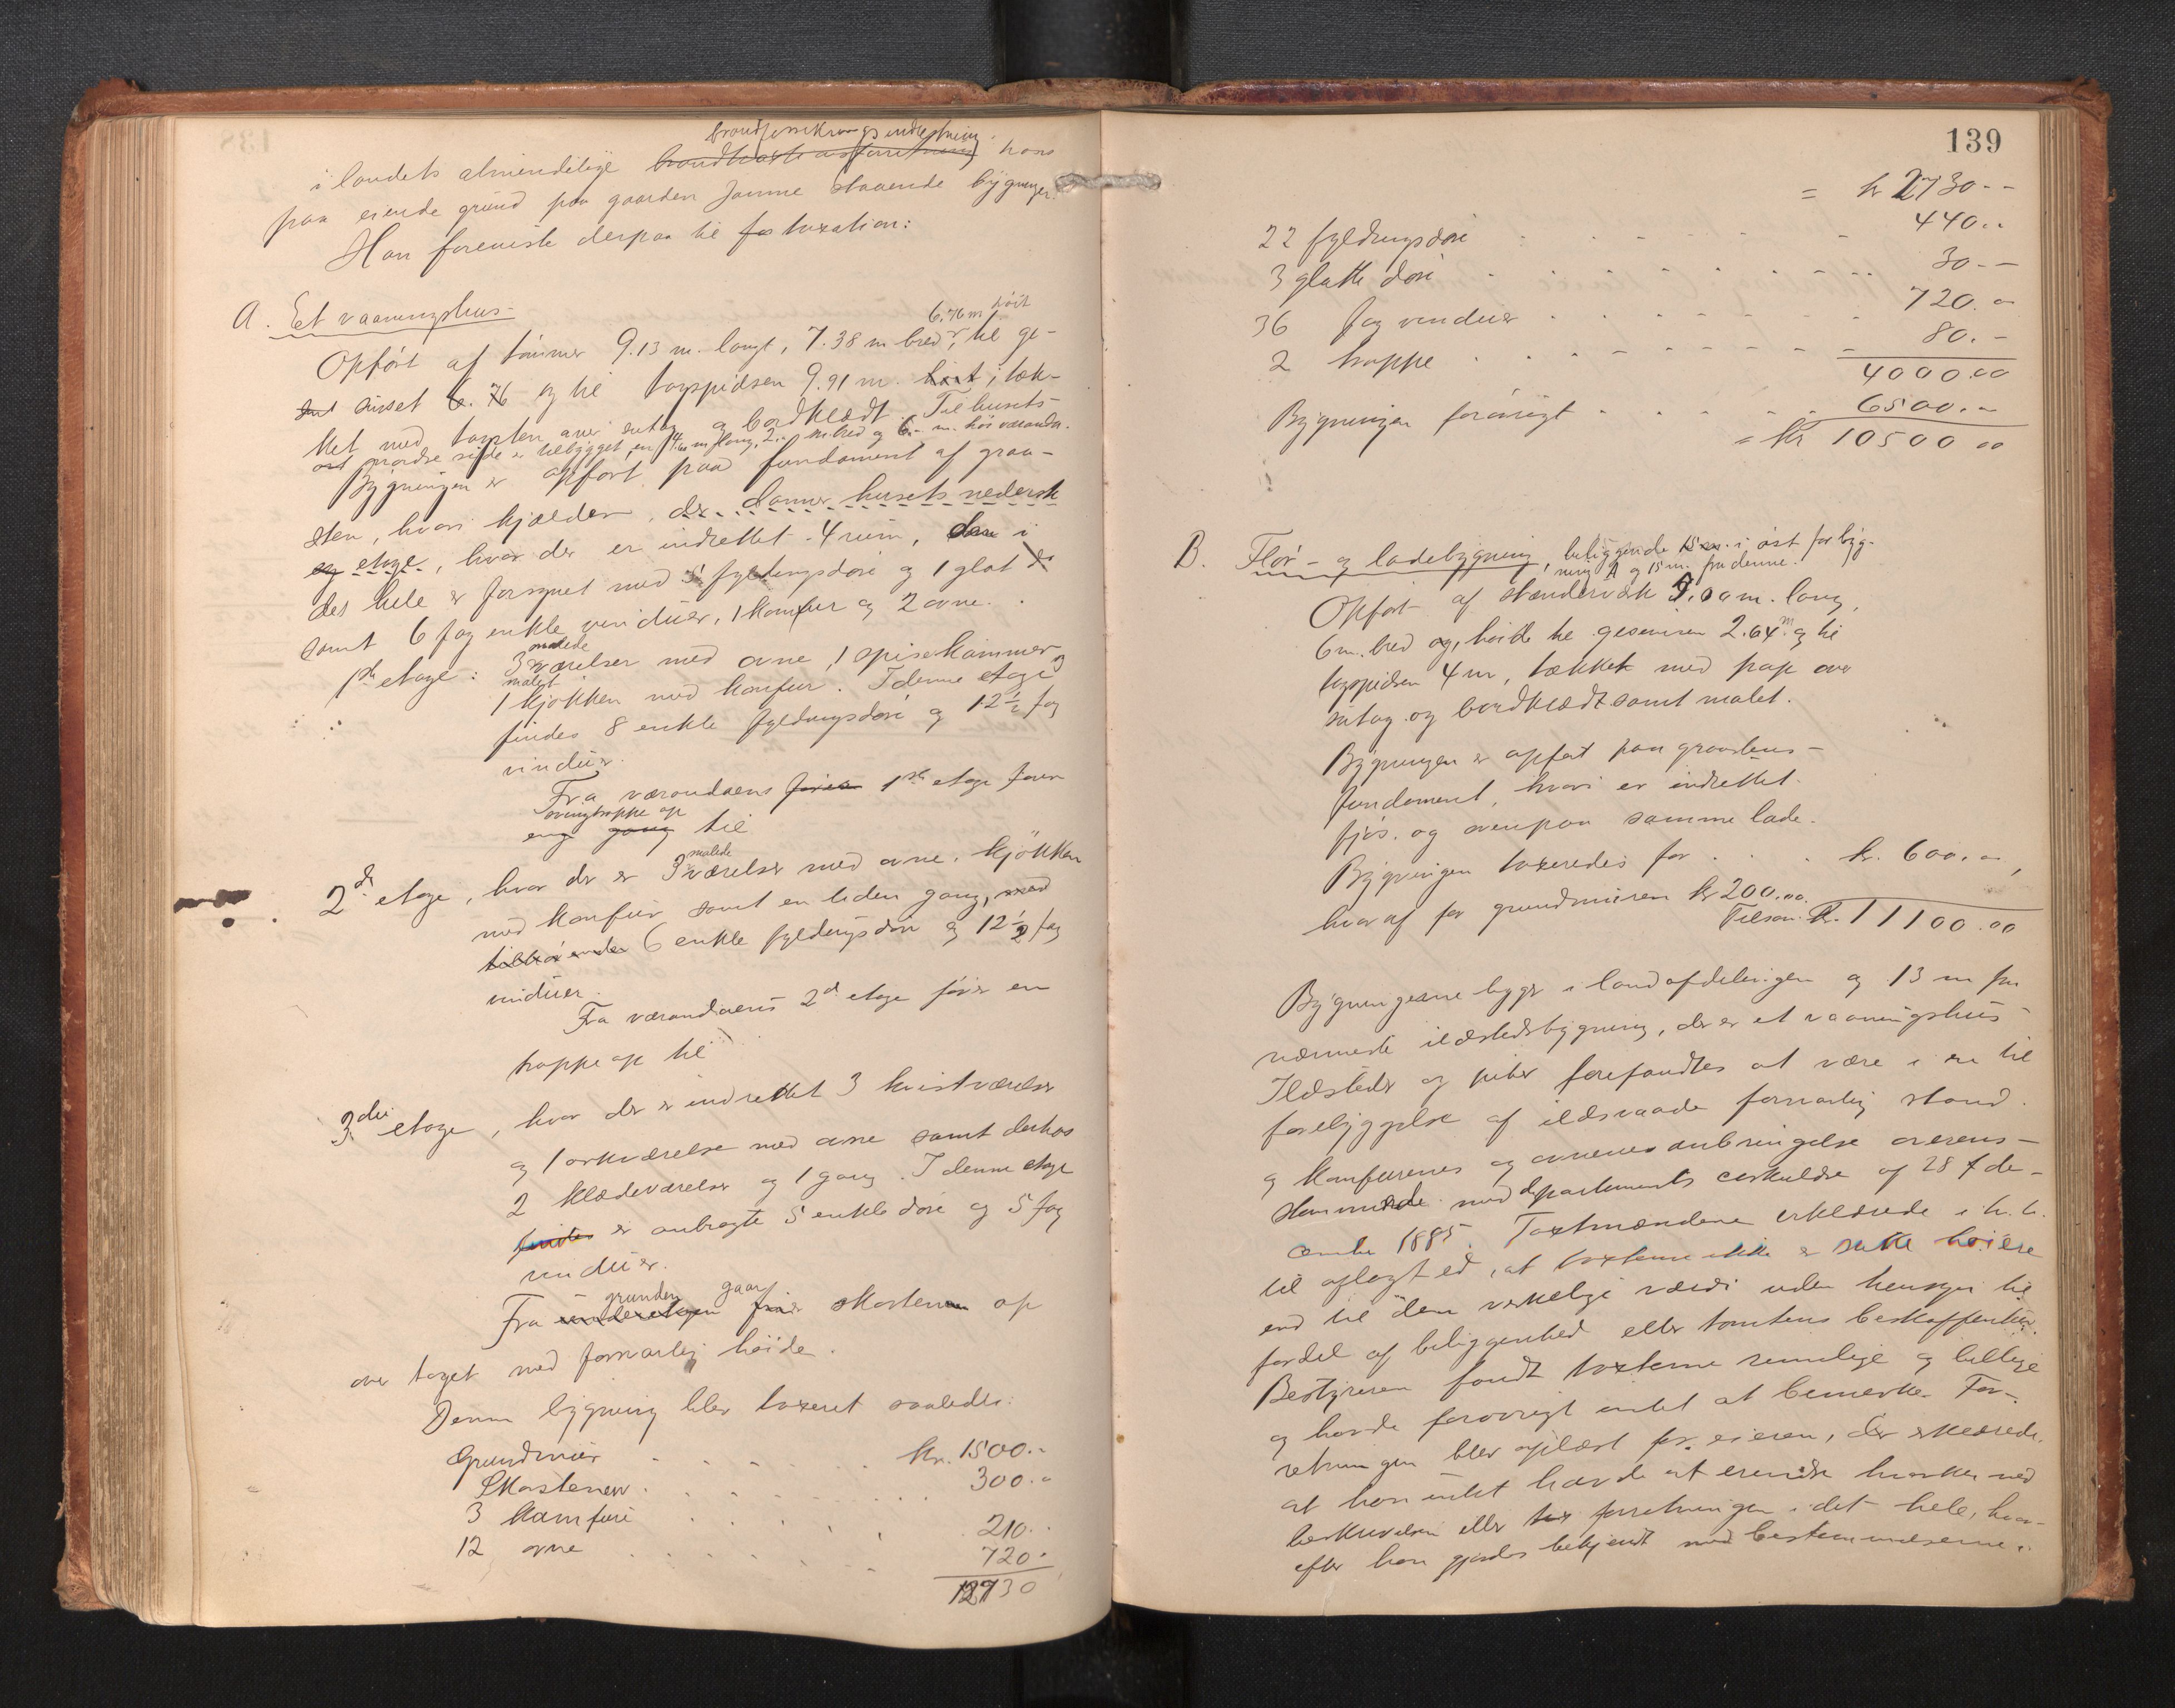 brandforsikringsindretning
i landets almindelige brandtaxtasforretning hans
paa eiende grund paa gaarden Janme staaende bygninger.
Han foreviste derpaa til taxation:
A. Et vaaningshus-
6.76 m høit
Opført af tømmer 9.13 m. langt, 7.38 m bred, til ge-
simset 6.76 og til tagspidsen 9.91 m. høit, tæk-
ket med tagsten over sutag og bordklædt. Til husets
nordre side er tilbygget en m lang, 2.. m. bred og 6.- m. høi veranda.
Bygningen er opført paa fundament af graa-
sten, hvori kjælder, der danner husets nederste
etage, hvor der er indrettet 4 rum, i
det hele er forsynet med 5 fyldingsdøre og 1 glat
samt 6 fag enkle vinduer, 1 komfur og 2 ovne.
1ste etage: 3 malede værelser med ovne, 1 spisekammer og
malet
1 kjøkken med komfur. I denne etage
findes 8 enkle fyldingsdøre og 12 1/2 fag
vinduer.
Fra verandaens 1ste etage fører
svingtrappe op
en gang til
2den etage, hvor der er 3 malede værelser med ovne, kjøkken
med komfur samt en liden gang, med
tilhørende 6 enkle fyldingsdøre og 12 1/2 fag
vinduer.
Fra verandaens 2d etage fører en
trappe op til
3die etage, hvor der er indrettet 3 kvistværelser
og 1 arkværelse med ovne samt derhos
2 klædeværelser og 1 gang. I denne etage
findes er anbragte 5 enkle døre og 5 fag
vinduer.
grunden gaar
Fra underetagen fører skorstenen op
over taget med forsvarlig høide.
Denne bygning blev taxeret saaledes:
Grundmur . . . . . kr. 1500.-
Skorstenen . . . . . 300.-
3 komfure . . . . . 210.-
12 ovne . . . . . 720.-
2730
139
= kr 2730--
22 fyldingsdøre . . . . 440..
3 glatte døre . . . . 30.--
36 fag vinduer . . . . 720.-
2 trappe . . . . 80.-
4000.00
Bygningen forøvrigt . . . . 6500.-
= Kr 10500 00
B. Flór- og ladebygning, beliggende i øst for byg-
ning A og 15 m. fra denne.
Opført af stænderværk 9.00 m. lang,
6 m. bred og, høide til gesimsen 2.64 m og til
tagspidsen 4 m, tækket med pap over
sutag og bordklædt samt malet.
Bygningen er opført paa graastens-
fundament, hvori er indrettet
fjøs og ovenpaa samme lade.
Bygningen taxeredes for . . . kr. 600.00,
hvoraf for grundmuren kr 200.00.
Tilsam. Kr. 11100.00
Bygningerne ligger i landafdelingen og 13 m fra
nærmeste ildstedsbygning, der er et vaaningshus
Ildsteder og piber forefandtes at være i en til
forebyggelse af ildsvaade forsvarlig stand
og komfurenes og ovnenes anbringelse overens-
stemmende med departements cirkulære af 28 de-
cember 1885. Taxtmændene erklærede i h. t.
til aflagt ed, at taxterne ikke er satte høiere
end til den virkelige værdi uden hensyn til
fordel af beliggenhed eller tomtens beskaffenhed.
Bestyreren fandt taxterne rimelige og billige
og havde forøvrigt intet at bemerke. For-
retningen blev oplæst for eieren, der erklærede,
at han intet havde at erindre hverken ved
beskrivelsen eller forretningen i det hele, hvor-
efter han gjordes bekjendt med bestemmelserne i